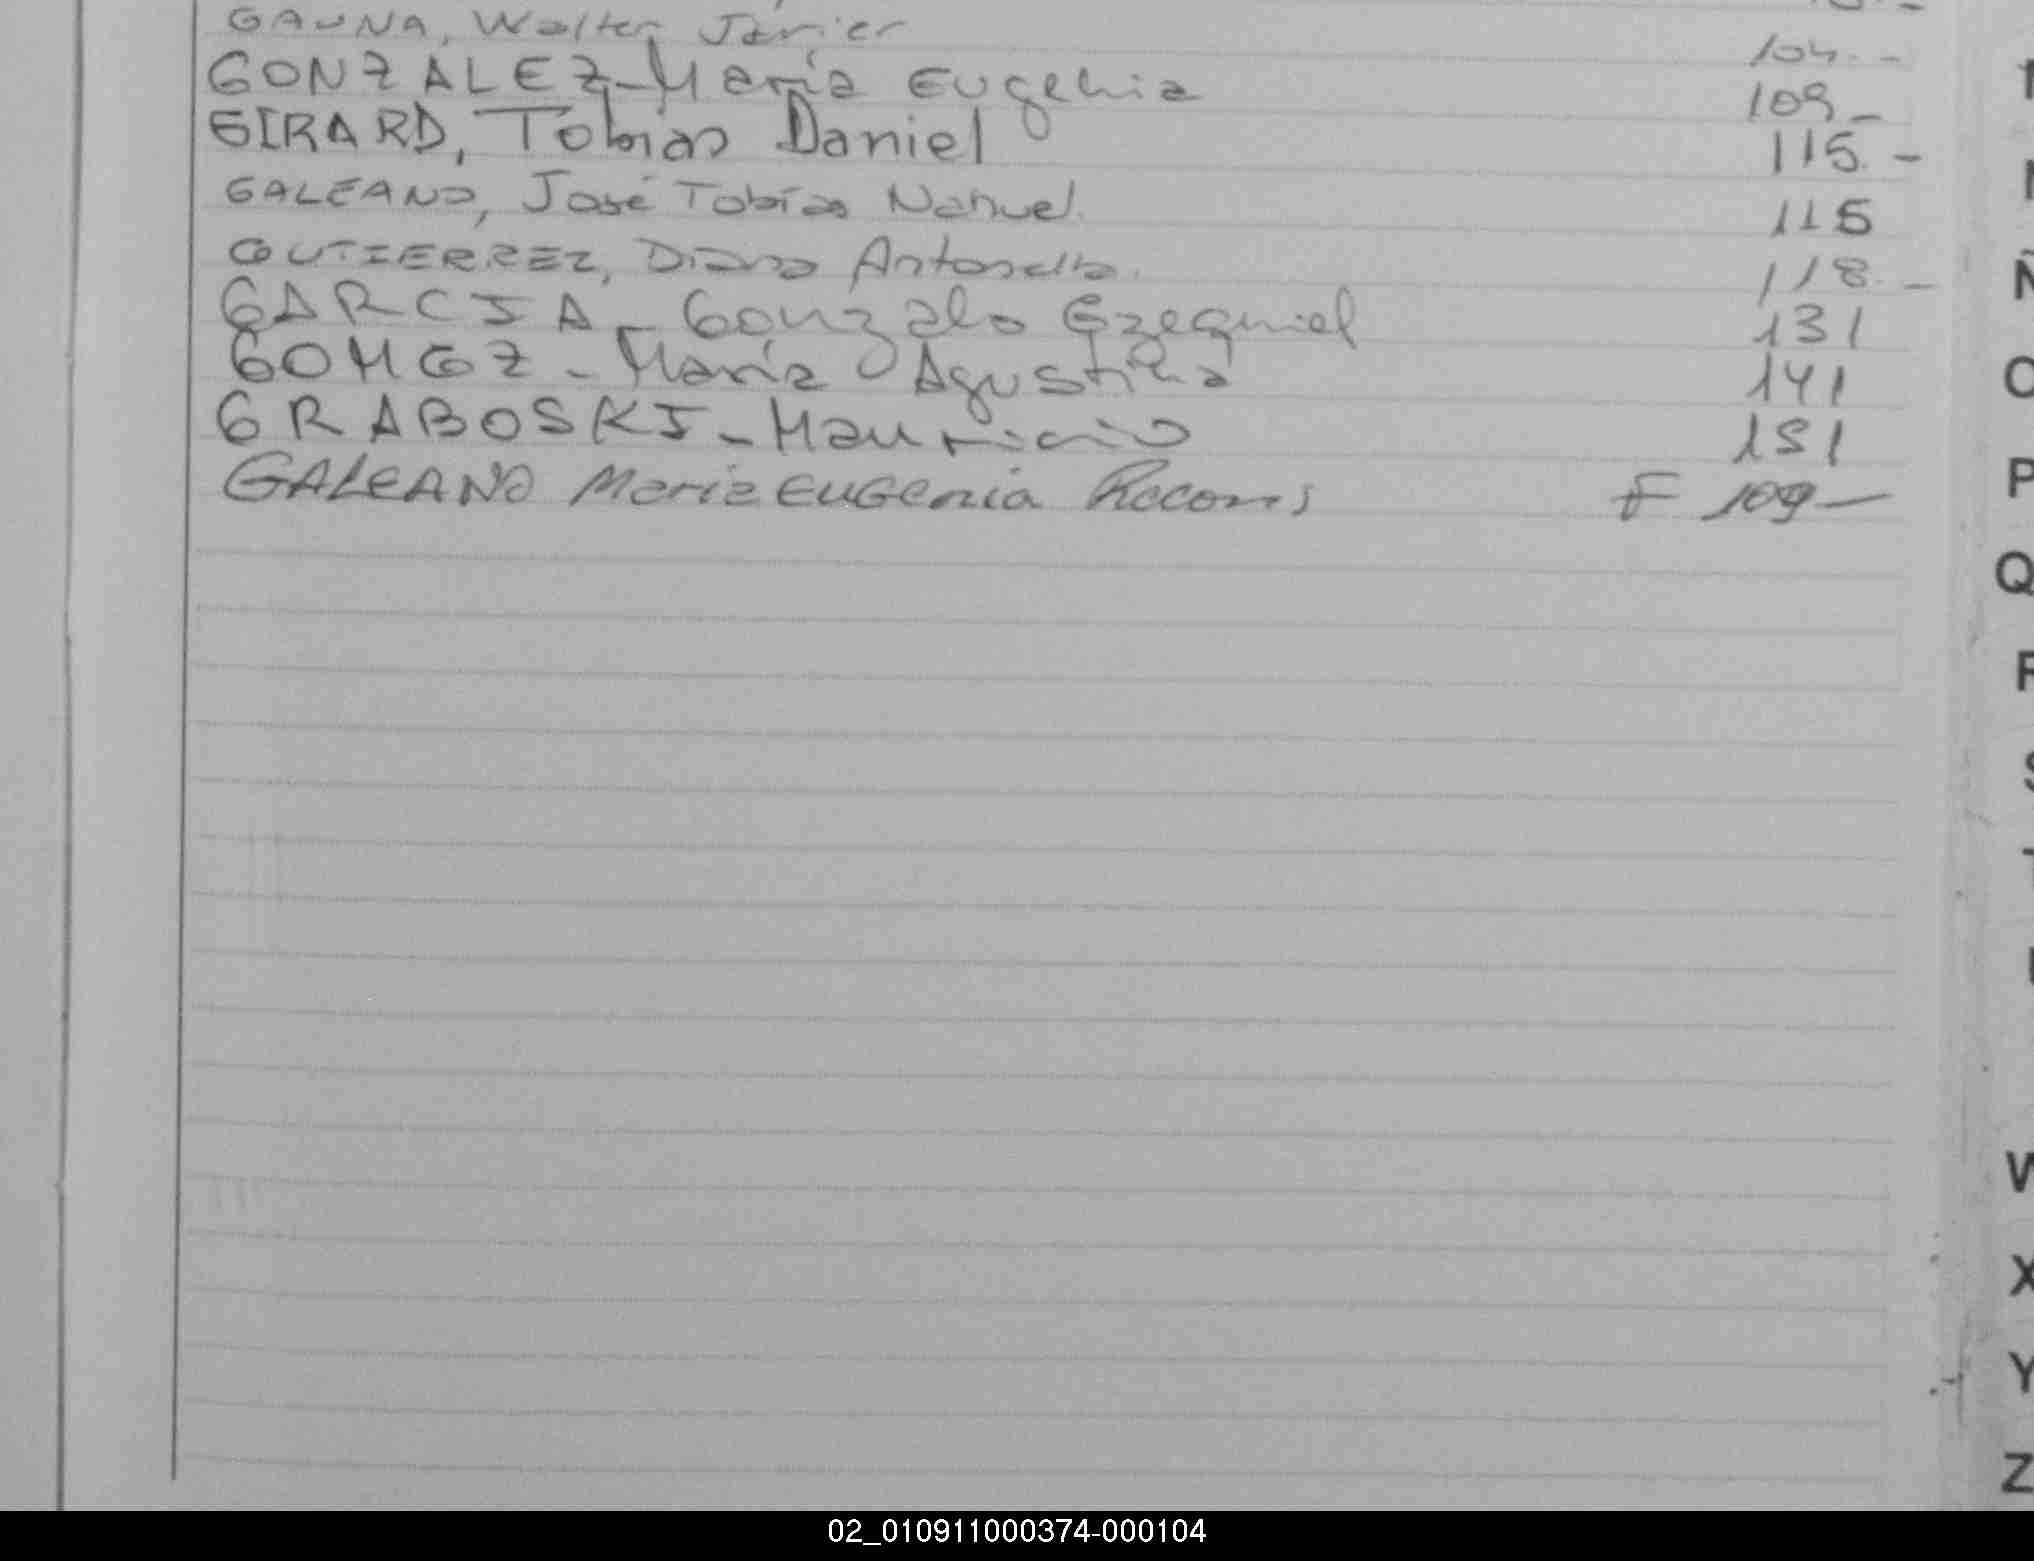 GAUNA, Walter Javier 104.-
GONZALEZ-María Eugenia 109-
GIRARD, Tobias Daniel 115.-
GALEANO, José Tobías Nahuel. 115
GUTIERREZ, Diana Antonella. 118.-
GARCIA-Gonzalo Ezequiel 131
GOMEZ-María Agustina 141
GRABOSKI-Mauricio 151
GALEANO María EUGenia Reconoc F 109-
Ñ
O
P
Q
R
S
T
U
W
X
Y
Z
02_010911000374-000104